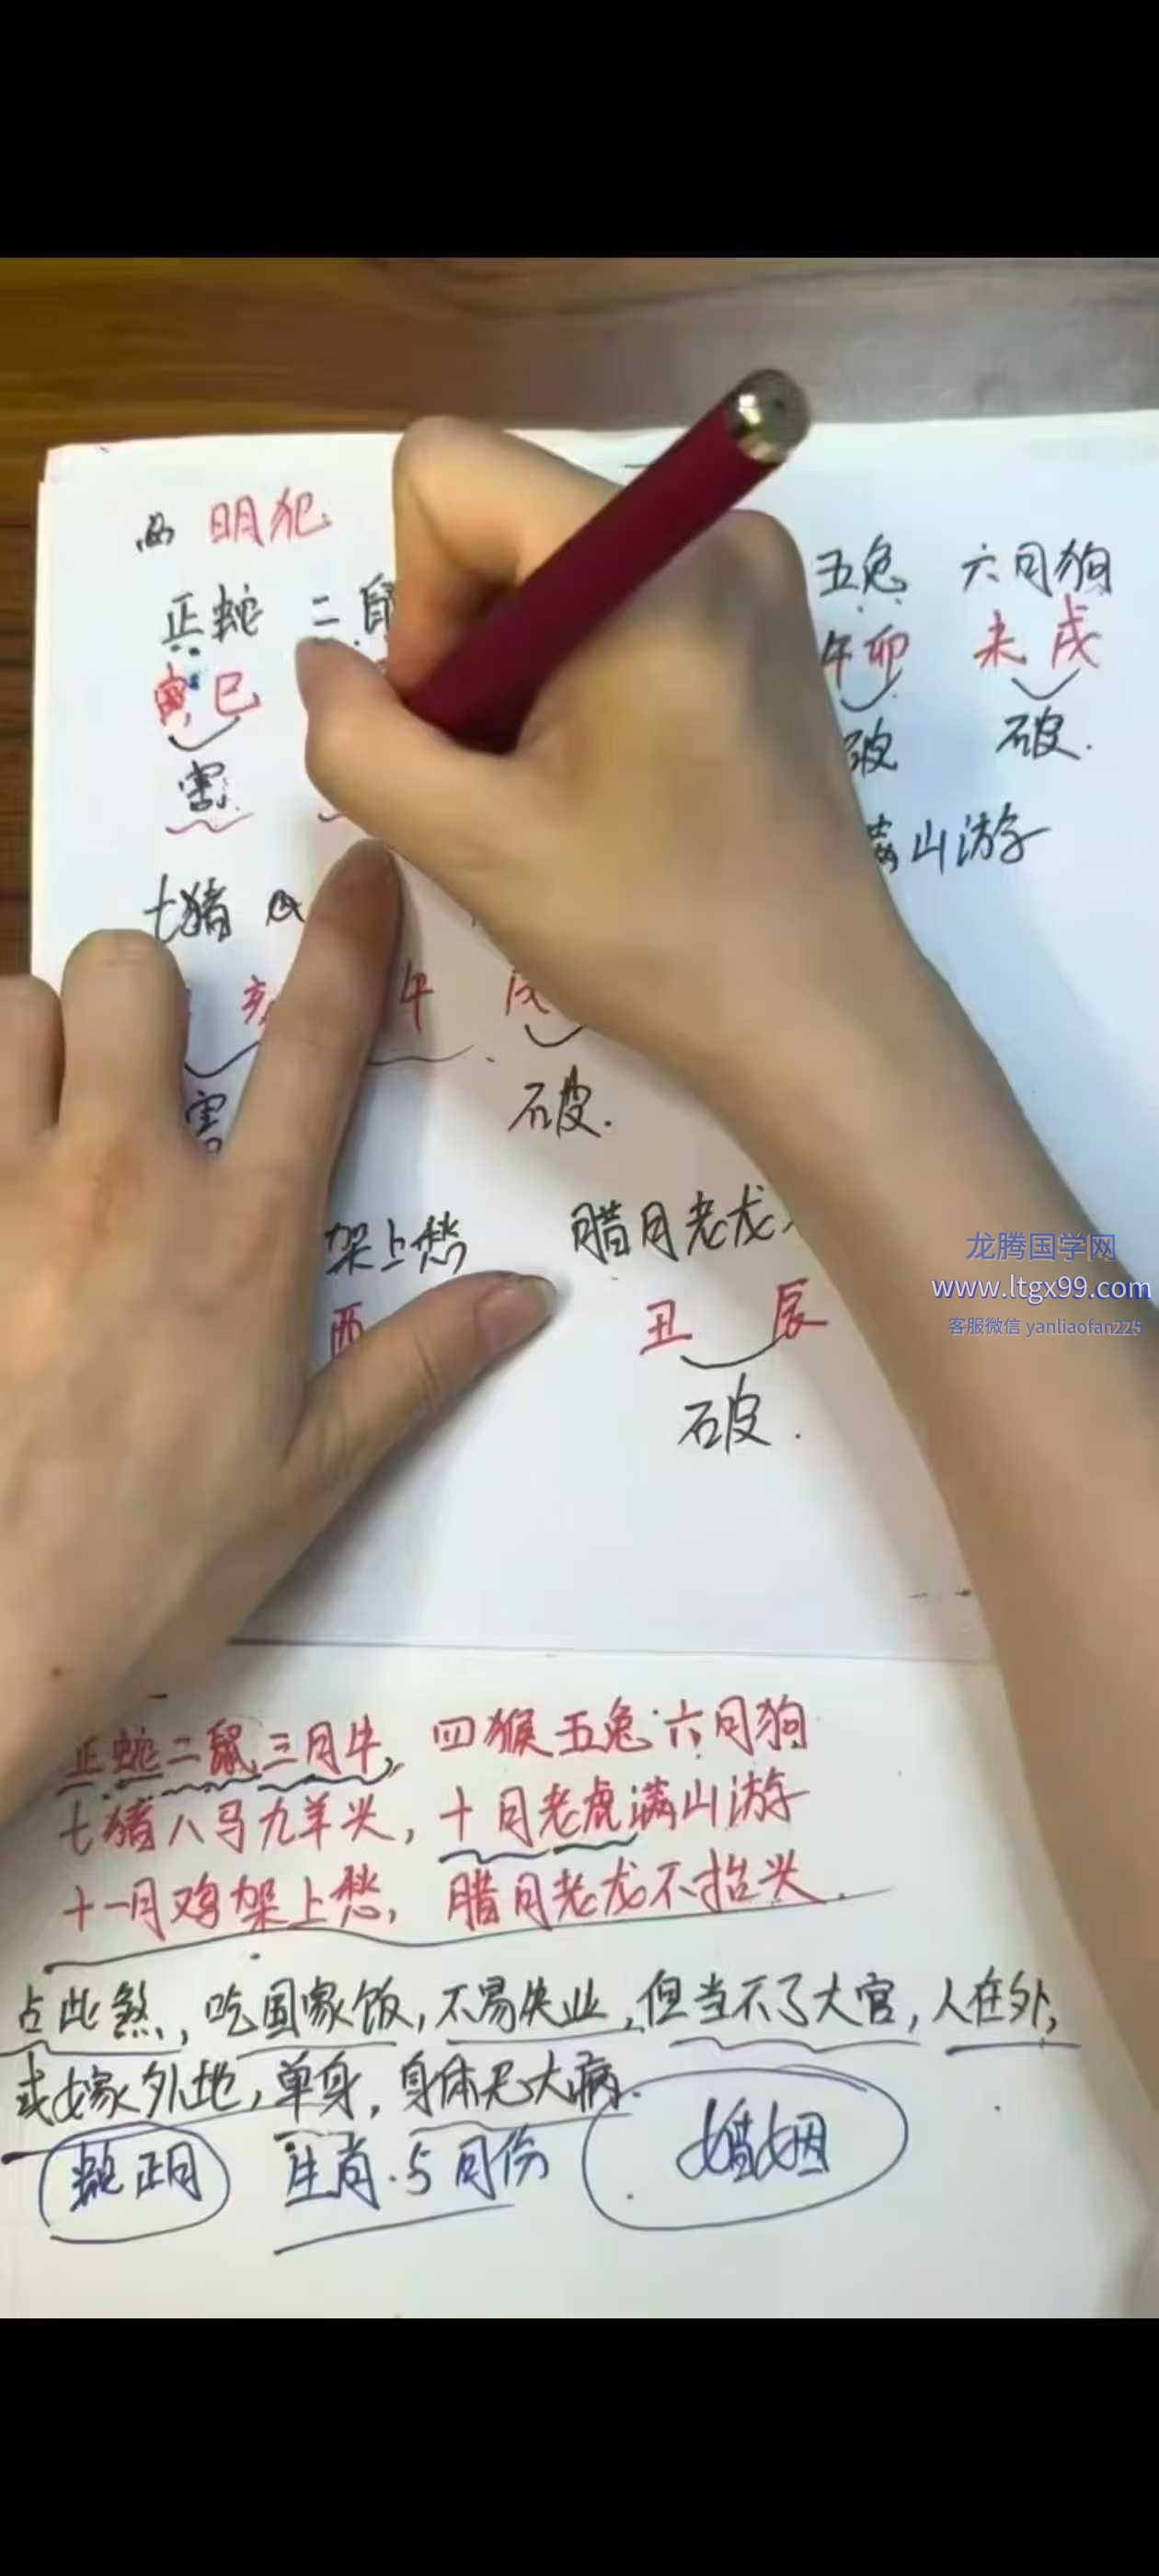 明犯
正蛇 二鼠 五兔 六月狗
寅 巳 午卯 未 戌
害 破 破.
满山游
七猪 八
亥 午 戌
害 破.
架上愁 腊月老龙
酉 丑 辰
破.
龙腾国学网
www.ltgx99.com
客服微信 yanliaofan225
正蛇二鼠三月牛, 四猴五兔六月狗
七猪八马九羊头, 十月老虎满山游
十一月鸡架上愁, 腊月老龙不抬头.
占此煞, 吃国家饭, 不易失业, 但当不了大官, 人在外,
或嫁外地, 单身, 身体无大病.
蛇 正月 生肖.与月份 婚姻